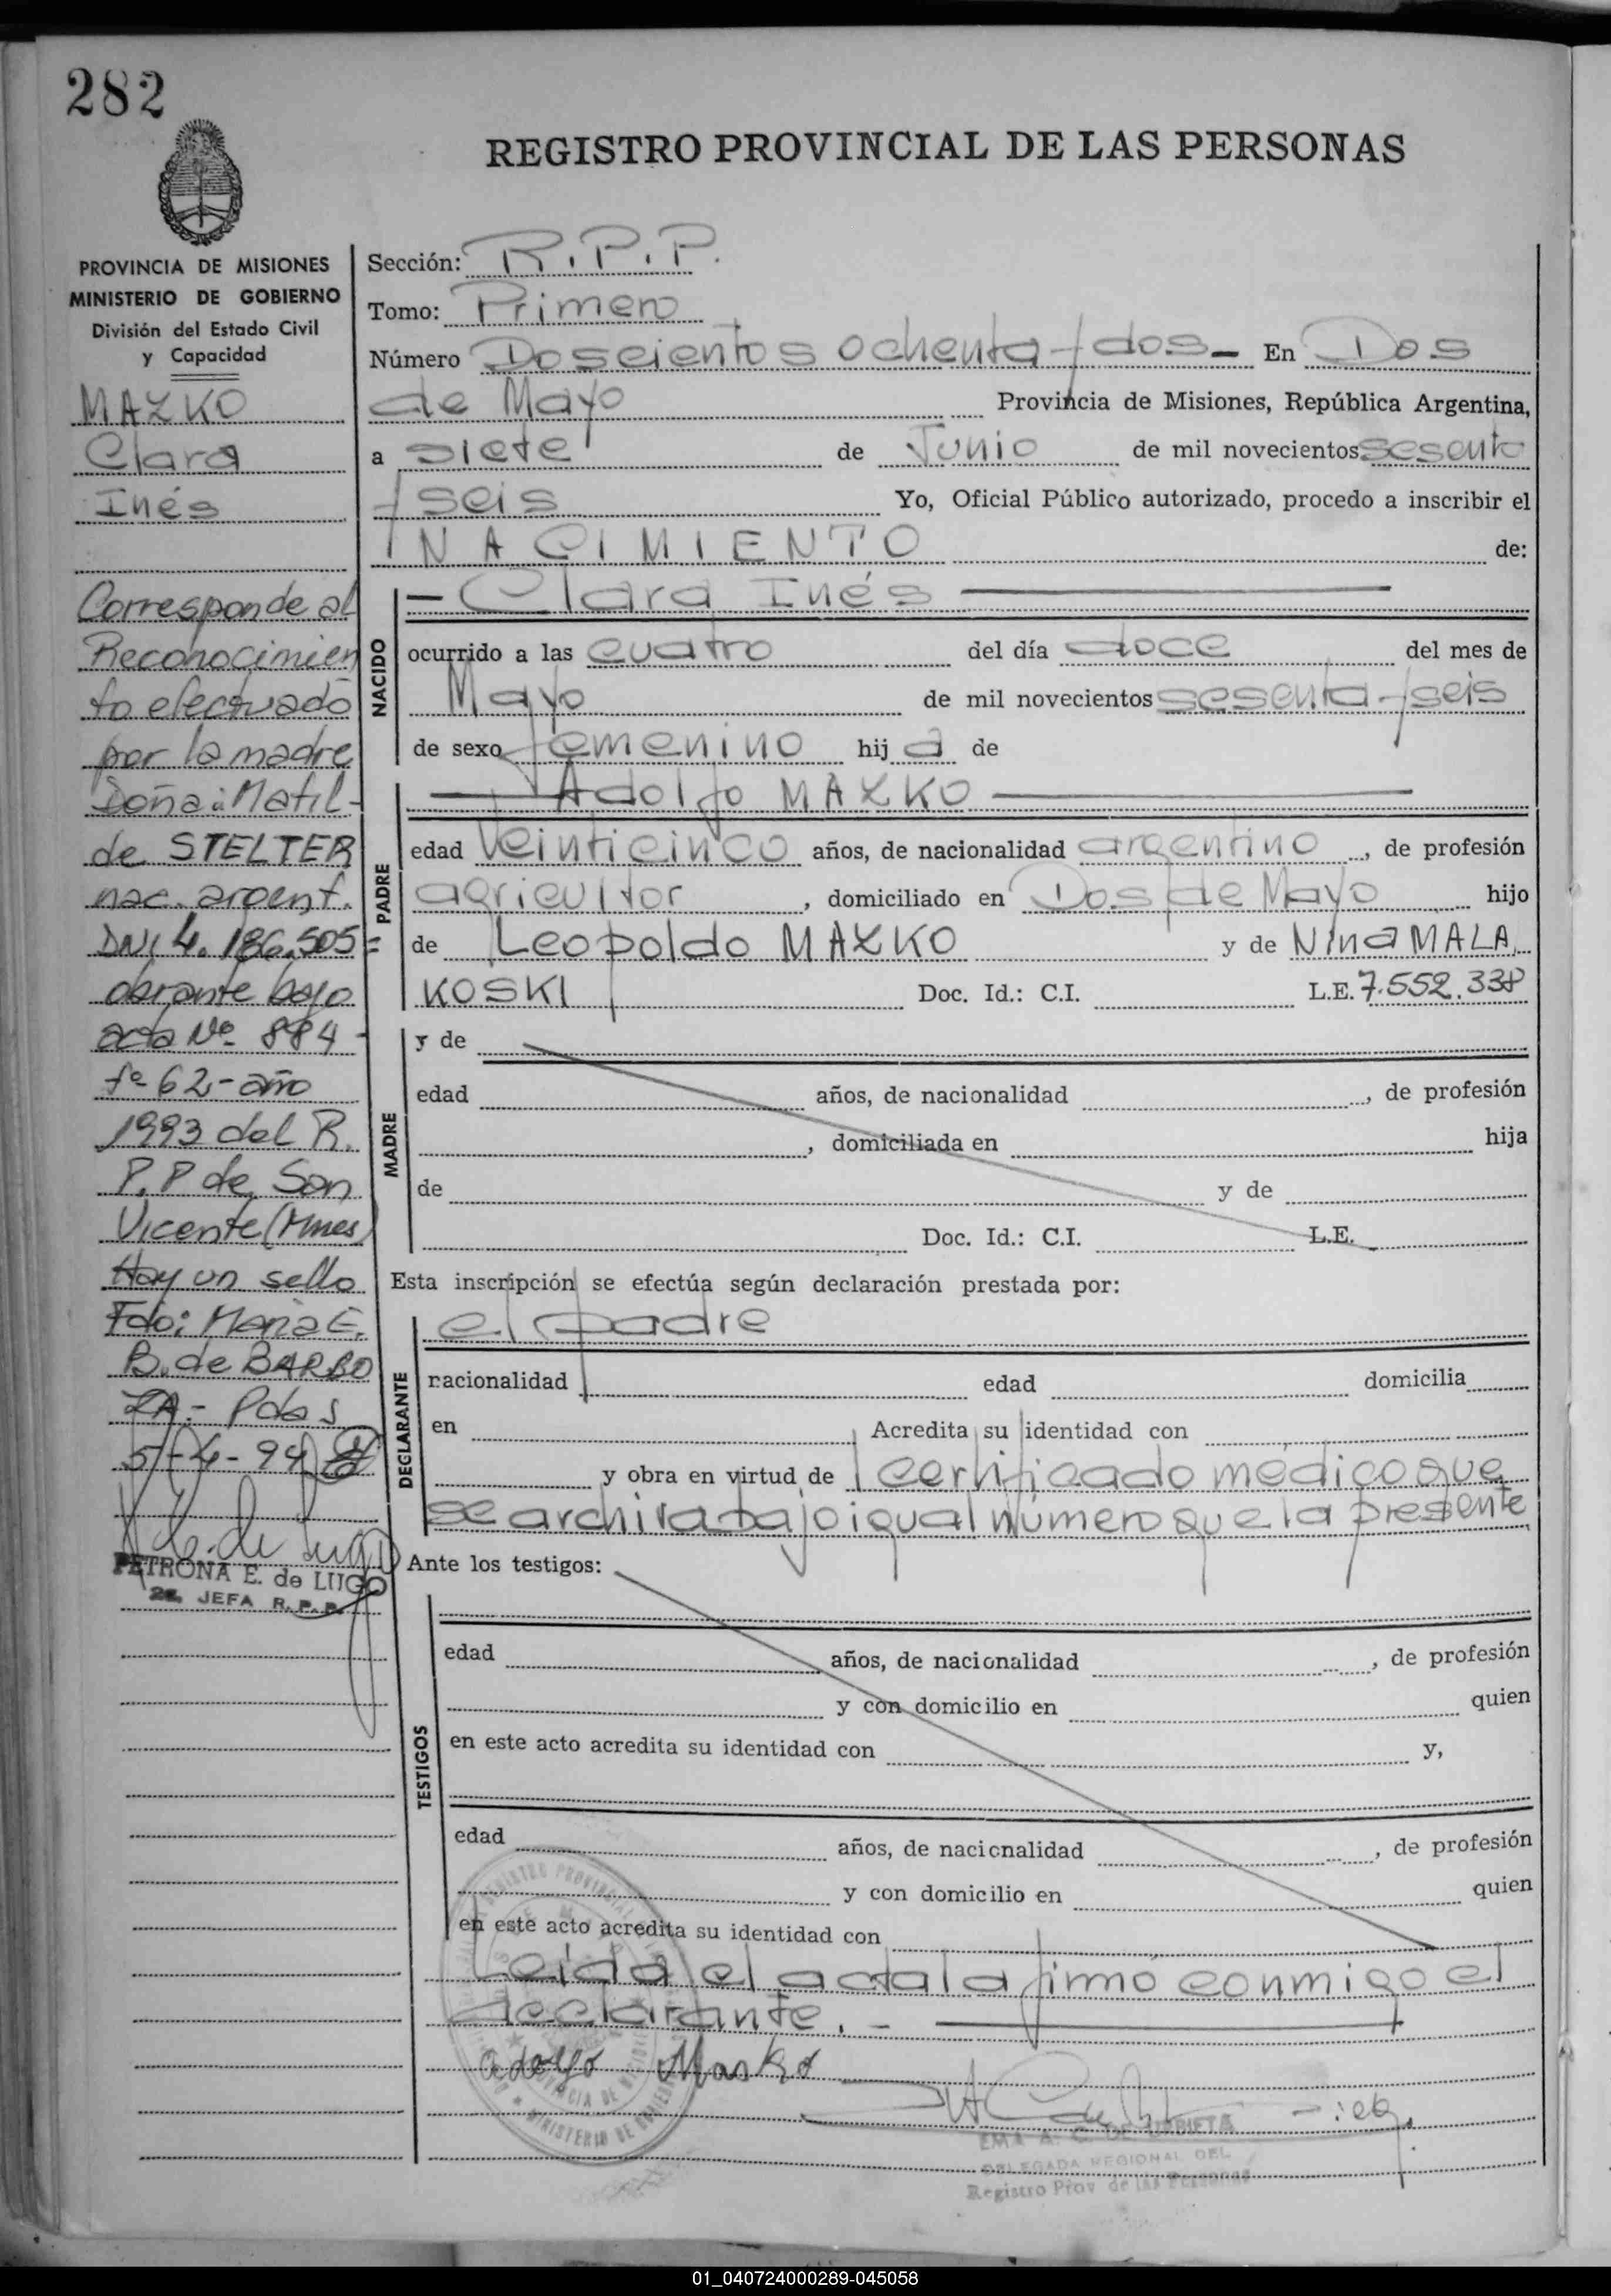 282
REGISTRO PROVINCIAL DE LAS PERSONAS
PROVINCIA DE MISIONES
MINISTERIO DE GOBIERNO
División del Estado Civil
y Capacidad
MAZKO
Clara
Inés
Corresponde al
Reconocimien
to efectuado
por la madre
Doña: Matil-
de STELTER
nac. argent.
DNI 4.186.505=
obrante bajo
acta Nº 884-
fº 62-año
1993 del R.
P.P de San
Vicente (Mnes)
Hay un sello
Fdo: Maria E.
B. de BARBO
ZA.- Pdas
5-4-94
PETRONA E. de LUGO
JEFA R.P.P.
Sección: R.P.P.
Tomo: Primero
Número Doscientos ochenta y dos- En Dos
de Mayo Provincia de Misiones, República Argentina,
a siete de Junio de mil novecientos sesenta
y seis Yo, Oficial Público autorizado, procedo a inscribir el
NACIMIENTO de:
NACIDO
- Clara Inés
ocurrido a las cuatro del día doce del mes de
Mayo de mil novecientos sesenta y seis
de sexo femenino hij a de
PADRE
Adolfo MAZKO
edad veinticinco años, de nacionalidad argentino, de profesión
agricultor, domiciliado en Dos de Mayo hijo
de Leopoldo MAZKO y de Nina MALA
KOSKI Doc. Id.: C.I. L.E. 7.552.338
MADRE
y de
edad años, de nacionalidad , de profesión
, domiciliada en hija
de y de
Doc. Id.: C.I. L.E.
Esta inscripción se efectúa según declaración prestada por:
DECLARANTE
el padre
nacionalidad edad domicilia
en Acredita su identidad con
y obra en virtud de certificado medico que
se archiva bajo igual número que la presente
Ante los testigos:
TESTIGOS
edad años, de nacionalidad , de profesión
y con domicilio en quien
en este acto acredita su identidad con y,
edad años, de nacionalidad , de profesión
y con domicilio en quien
en este acto acredita su identidad con
Leida el acta la firmó conmigo el
declarante.-
Adolfo Masko
EMA A. C. DE URBIETA
DELEGADA REGIONAL DEL
Registro Prov. de las Personas
01_040724000289-045058